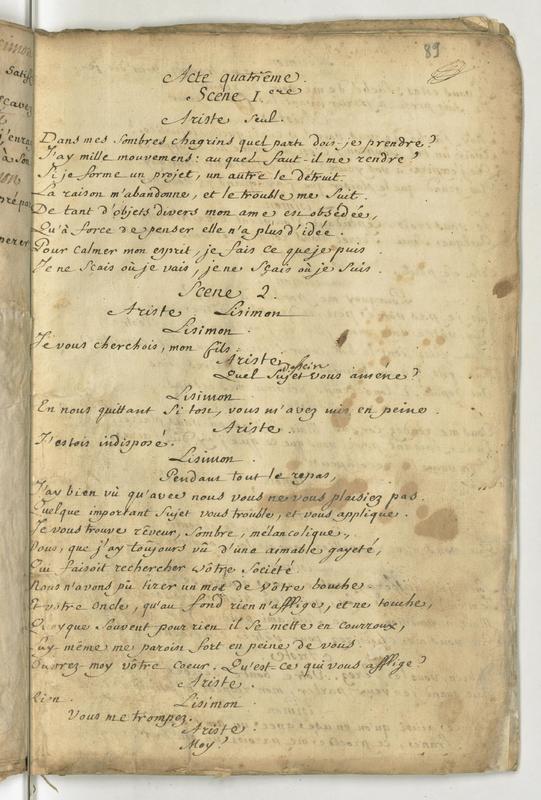 89
Acte quatriême.
Scene I.ere
Ariste seul.
Dans mes sombres chagrins quel parti dois-je prendre?
J'ay mille mouvemens: auquel faut-il me rendre?
Si je forme un projet, un autre le détruit.
La raison m'abandonne, et le trouble me suit.
De tant d'objets divers mon ame est obsédée,
Qu'à force de penser elle n'a plus d'idée.
Pour calmer mon esprit, je fais ce que je puis
Je ne sçais où je vais, je ne sçais où je suis.
Scene 2.
Ariste Lisimon
Lisimon.
Je vous cherchois, mon fils.
Ariste
dessein
Quel sujet vous améne?
Lisimon
En nous quittant si tost, vous m'avez mis en peine.
Ariste.
J'estois indisposé.
Lisimon.
Pendant tout le repas,
J'ay bien vû qu'avec nous vous ne vous plaisiez pas.
Quelque important sujet vous trouble, et vous applique.
Je vous trouve rêveur, sombre, mélancolique,
Vous, que j'ay toûjours vû d'une aimable gayeté,
Qui faisoit rechercher vôtre société.
Nous n'avons pû tirer un mot de vôtre bouche.
Et vôtre Oncle, qu'au fond rien n'afflige, et ne touche,
Quoyque souvent pour rien il se mette en courroux,
Luy-même me paroist fort en peine de vous.
Ouvrez-moy vôtre coeur. Qu'est-ce qui vous afflige?
Ariste.
Rien.
Lisimon.
Vous me trompez.
Ariste.
Moy?